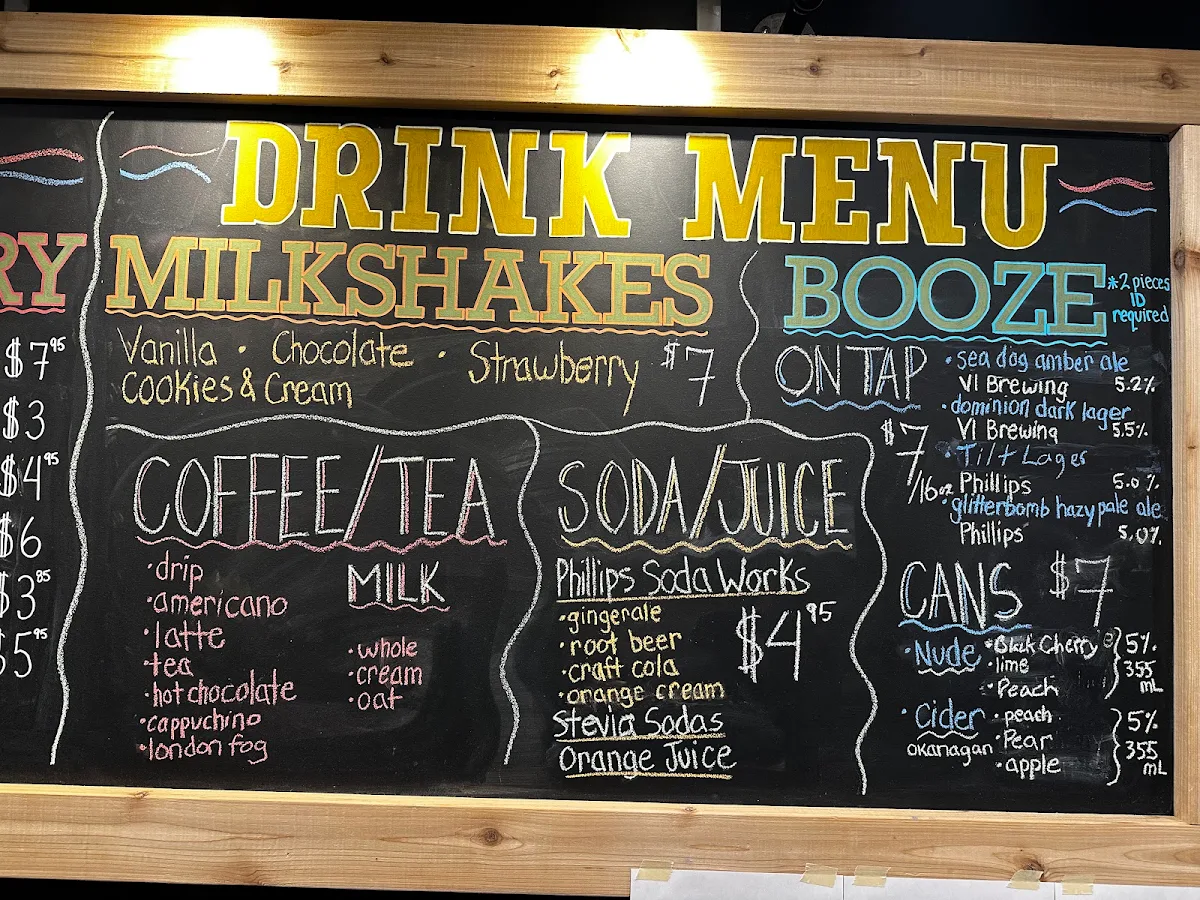 RY
$7.95
$3
$4.95
$6
$3.85
$5.95
DRINK MENU
MILKSHAKES
Vanilla · Chocolate · Strawberry $7
Cookies & Cream
COFFEE/TEA
·drip
·americano
·latte
·tea
·hot chocolate
·cappuchino
·london fog
MILK
·whole
·cream
·oat
SODA/JUICE
Phillips Soda Works
·gingerale
·root beer
·craft cola
·orange cream
$4.95
Stevia Sodas
Orange Juice
BOOZE
*2 pieces
ID
required
ON TAP
$7/16oz
·sea dog amber ale
VI Brewing 5.2%
·dominion dark lager
VI Brewing 5.5%
·Tilt Lager
Phillips 5.0%
·glitterbomb hazy pale ale
Phillips 5.0%
CANS $7
·Nude ·Black Cherry
·lime
·Peach
5%
355
mL
·Cider ·peach
okanagan ·Pear
·apple
5%
355
mL